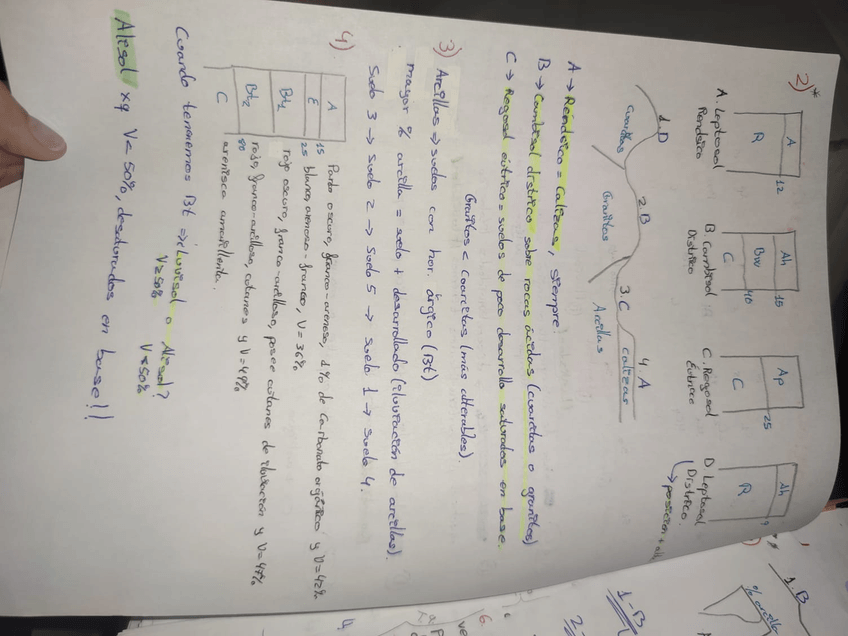 2)*
A
12
R
A. Leptosol
Réndsico
Ah
15
Bw
40
C
B. Cambisol
Dístrico
Ap
25
C
C. Regosol
Éutrico
Ah
9
R
D. Leptosol
Dístrico
→ posición + al
1. D
2. B
3. C
4. A
Cuarcitas
Granitas
Arcillas
calizas
A → Réndsico = Calizas, siempre.
B → Cambisol dístrico sobre rocas ácidas (cuarcitas o granitos)
C → Regosol éutrico = suelos de poco desarrollo saturados en base.
Granitos < cuarcitas (más alterables).
3) Arcillas ⇒ suelos con hor. árgico (Bt)
mayor % arcilla = suelo + desarrollado (iluviación de arcillas).
Suelo 3 → Suelo 2 → Suelo 5 → suelo 1 → suelo 4.
4)
A 15 Pardo oscuro, franco-arenoso, 1% de carbonato orgánico y V=42%
E 25 blanco, arenoso-franco, V=36%
Bt1 rojo oscuro, franco-arcilloso, posee cutanes de iluviación y V=47%
Bt2 80 rojo, franco-arcilloso, cutanes y V=49%
C arenisca amarillenta.
Cuando tenemos Bt ⇒ ¿Luvisol o Alisol?
V≥50% V<50%
Alisol xq V<50%, desaturados en base!!
1. B
% arcilla
1-B
6.
4.